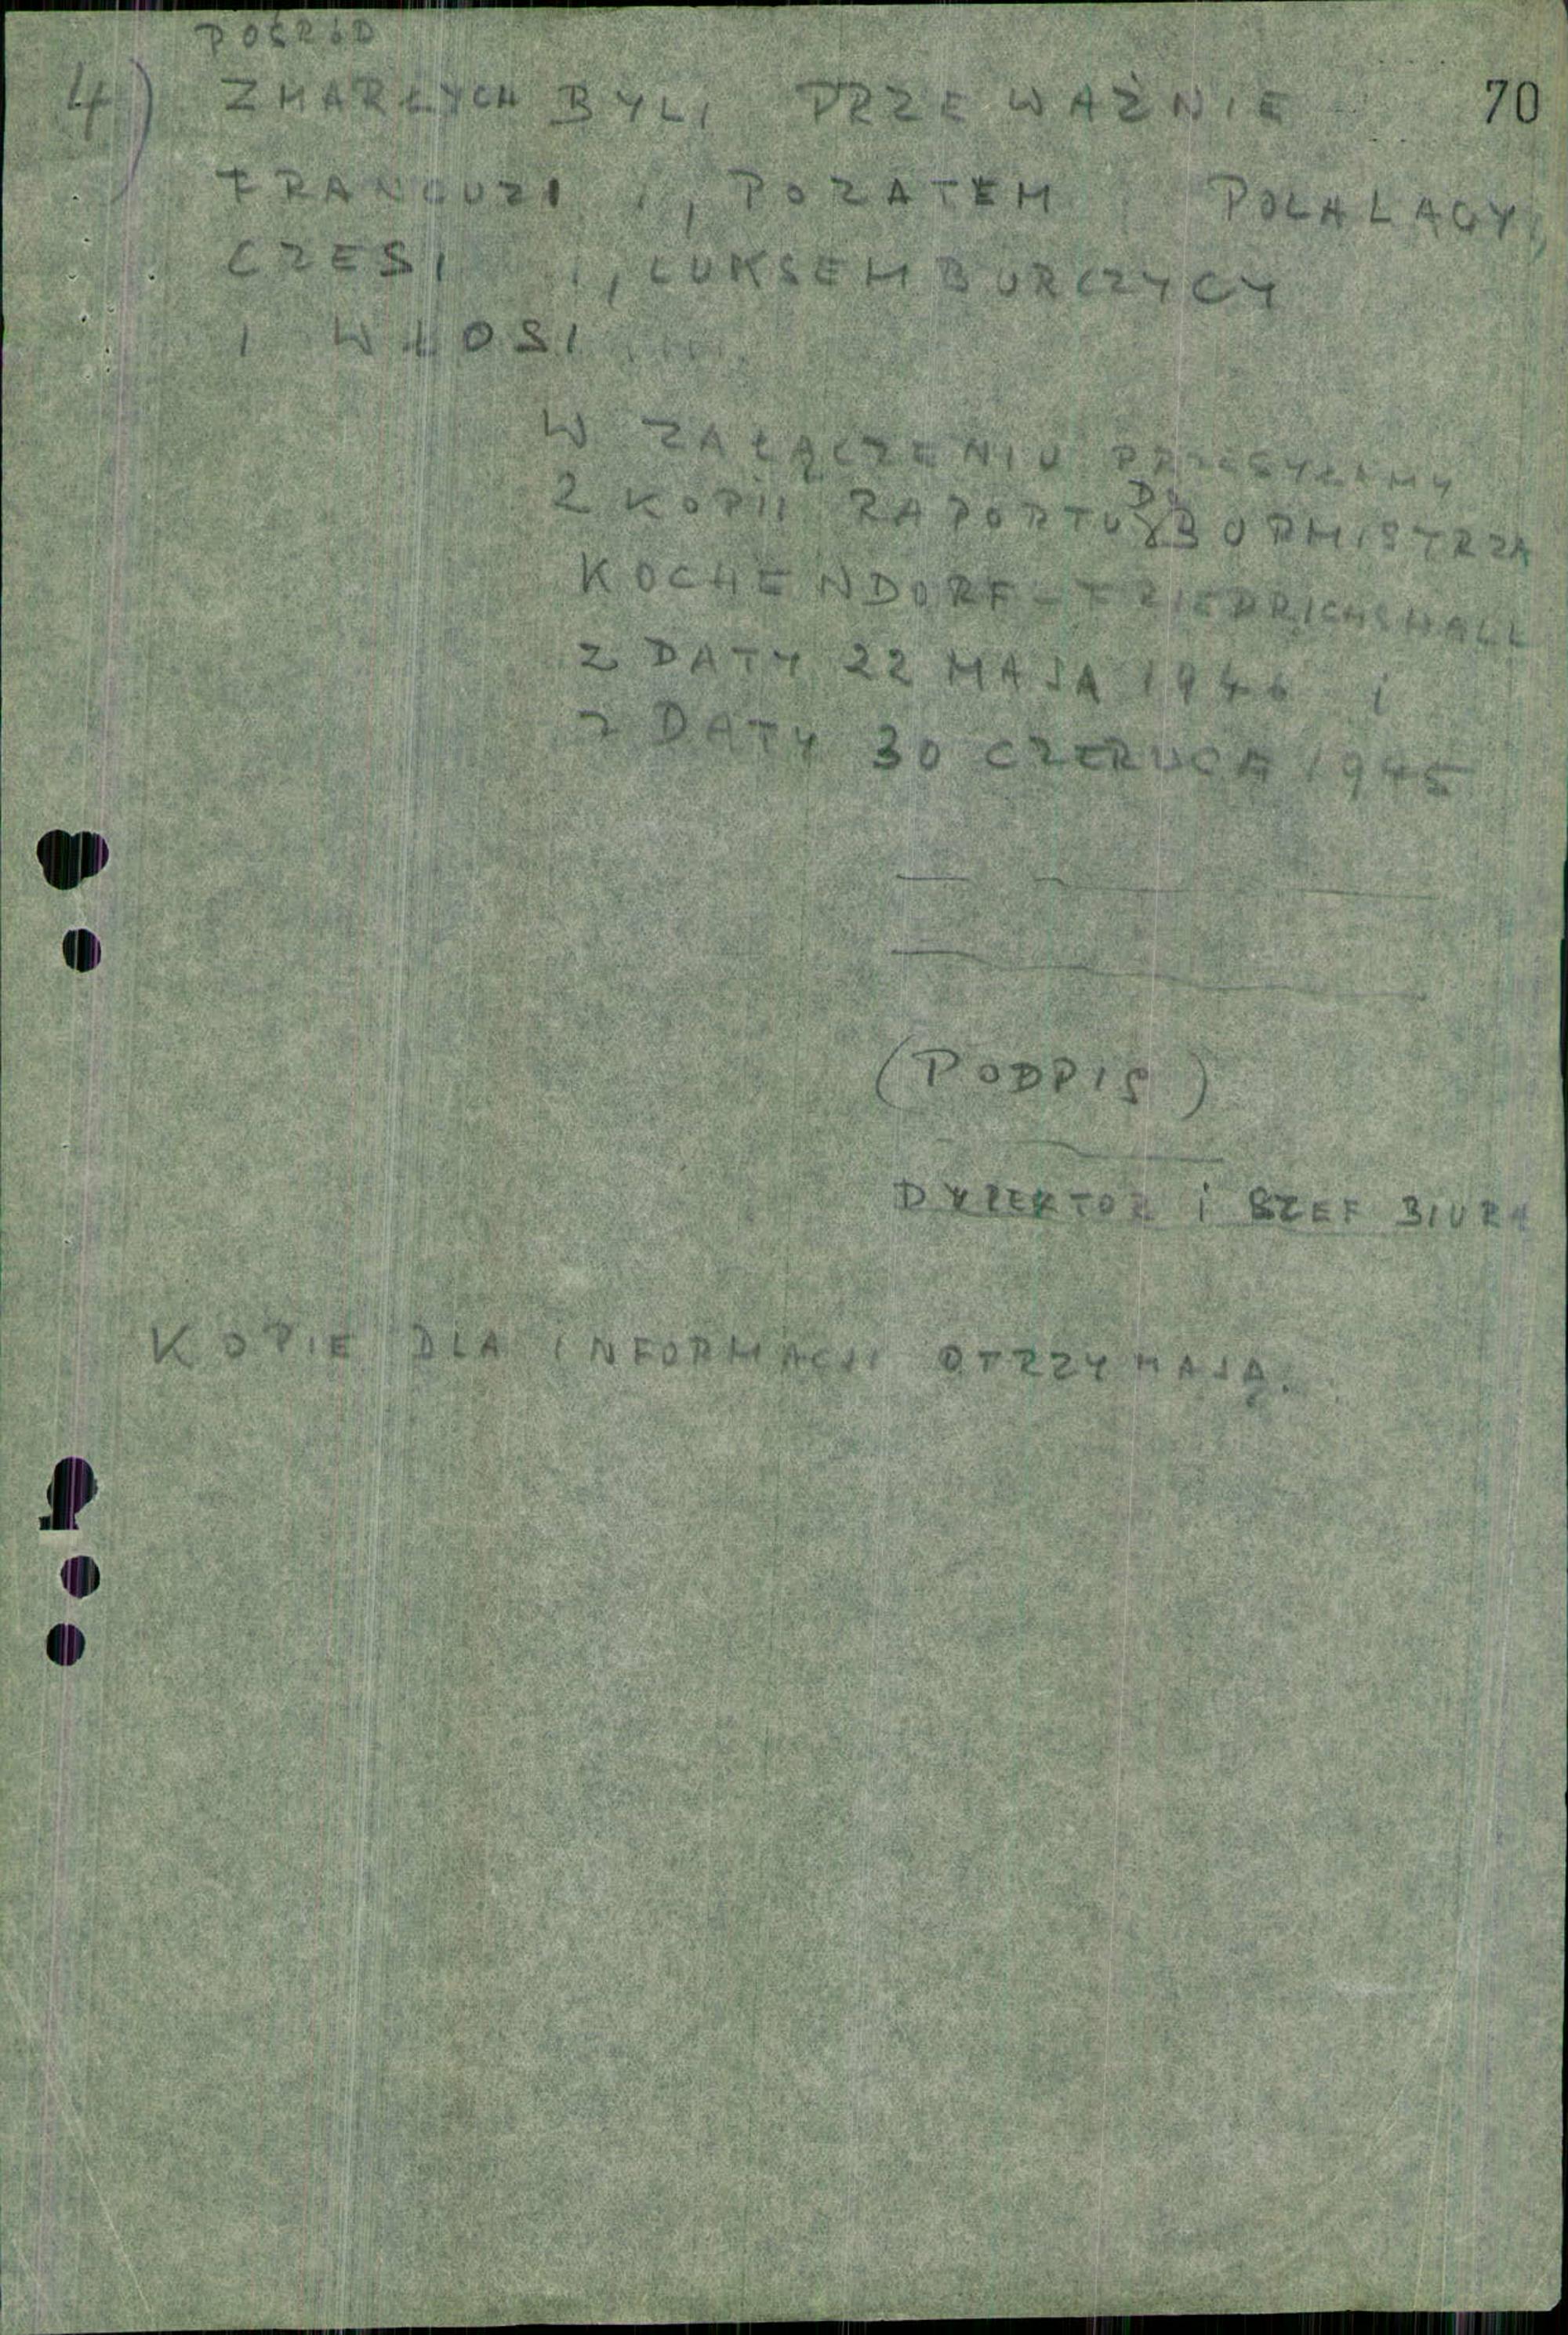 70
POŚRÓD
4) ZMARŁYCH BYLI PRZEWAŻNIE
FRANCUZI, POZATEM POLALACY,
CZESI, LUKSEMBURCZYCY
I WŁOSI
W ZAŁĄCZENIU PRZESYŁAMY
2 KOPII RAPORTU DO BURMISTRZA
KOCHENDORF - FRIEDRICHSHALL
Z DATY 22 MAJA 1946 i
Z DATY 30 CZERWCA 1945
(PODPIS)
DYREKTOR i SZEF BIURA
KOPIE DLA INFORMACJI OTRZYMAJĄ.